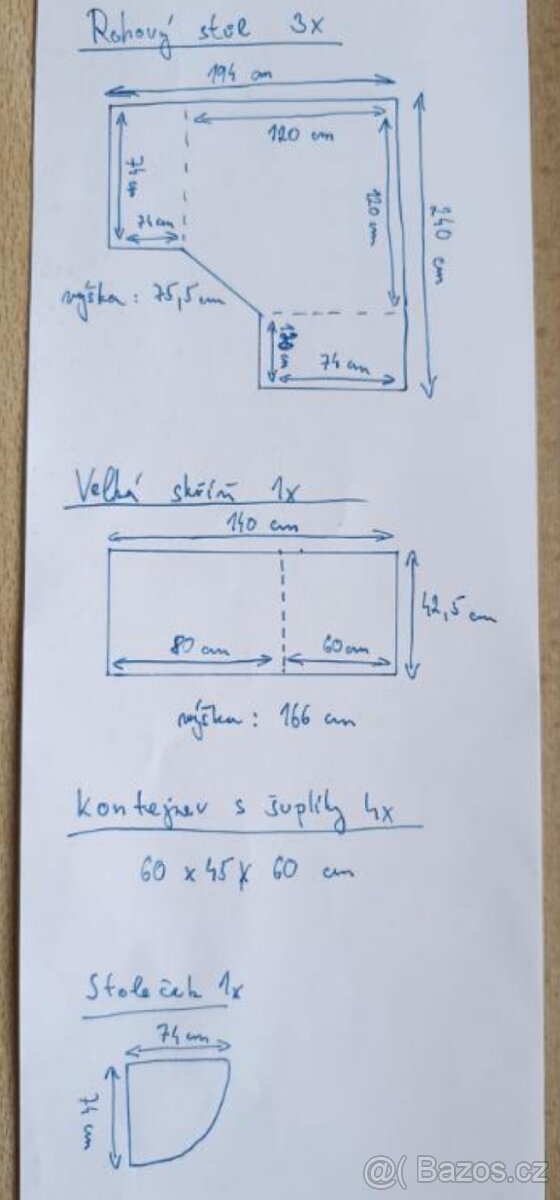 Rohový stůl 3x
194 cm
120 cm
74 cm
74 cm
120 cm
240 cm
výška: 75,5 cm
74 cm
Velká skříň 1x
140 cm
42,5 cm
80 cm
60 cm
výška: 166 cm
Kontejner s šuplíky 4x
60 x 45 x 60 cm
Stoleček 1x
74 cm
74 cm
@( Bazos.cz